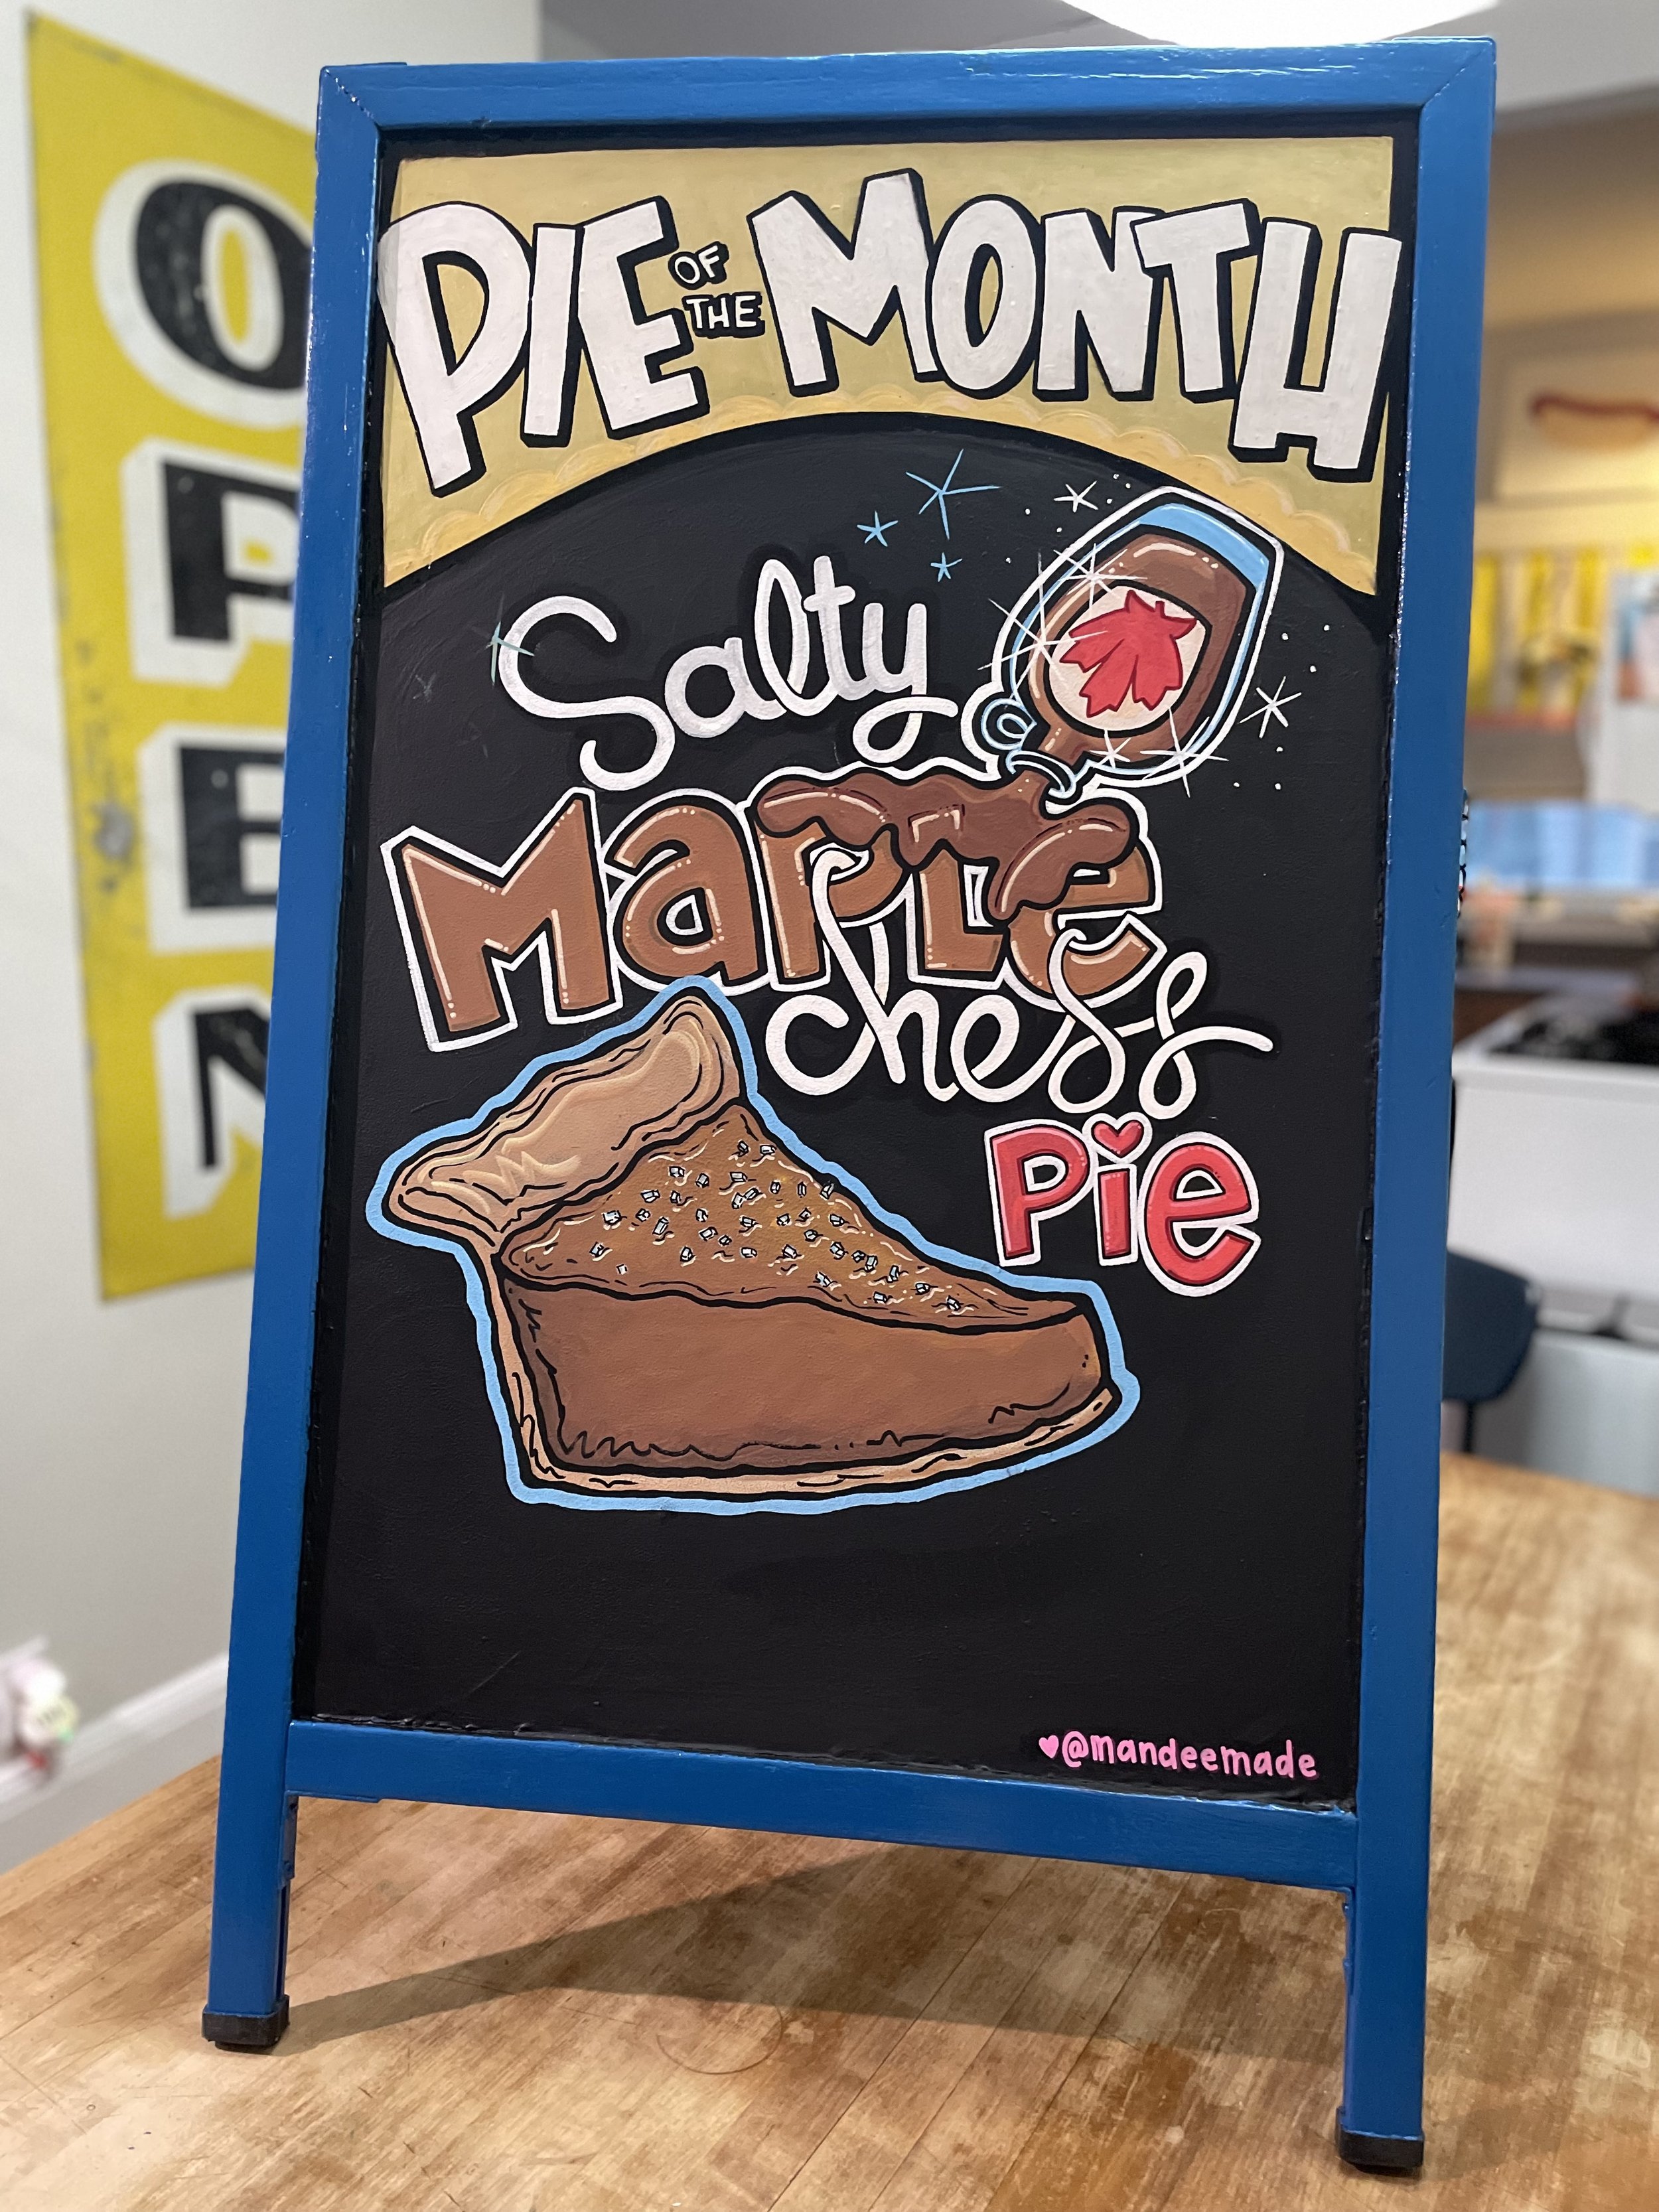 PIE OF THE MONTH
Salty
MaPLe
chess
Pie
@mandeemade
OPEN